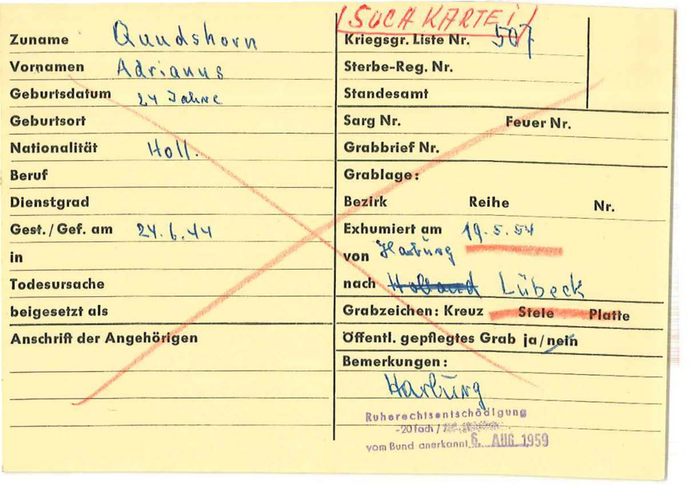 (SUCHKARTEI)
Zuname Quudshorn
Vornamen Adrianus
Geburtsdatum 24 Jahre
Geburtsort
Nationalität Holl.
Beruf
Dienstgrad
Gest./Gef. am 24.6.44
in
Todesursache
beigesetzt als
Anschrift der Angehörigen
Kriegsgr. Liste Nr. 507
Sterbe-Reg. Nr.
Standesamt
Sarg Nr. Feuer Nr.
Grabbrief Nr.
Grablage:
Bezirk Reihe Nr.
Exhumiert am 19.5.54
von Harburg
nach Holland Lübeck
Grabzeichen: Kreuz Stele Platte
Öffentl. gepflegtes Grab ja/nein
Bemerkungen:
Harburg
Ruherechtsentschädigung
-20fach /
vom Bund anerkannt 6. AUG. 1959